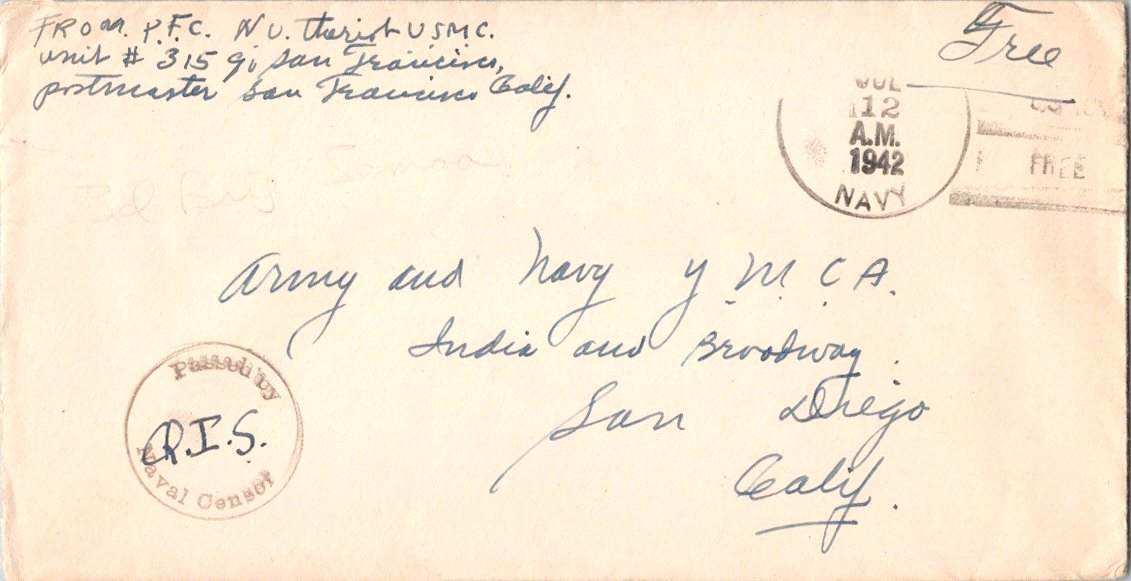 FROM. P.F.C. N U. Theriot USMC.
unit # 315 % San Francisco,
postmaster San Francisco Calif.
Free
JUL
12
A.M.
1942
NAVY
FREE
3d Brig Samoa
Army and Navy Y M. C. A.
India and Broadway.
San Diego
Calif.
Passed by
R.I.S.
Naval Censor